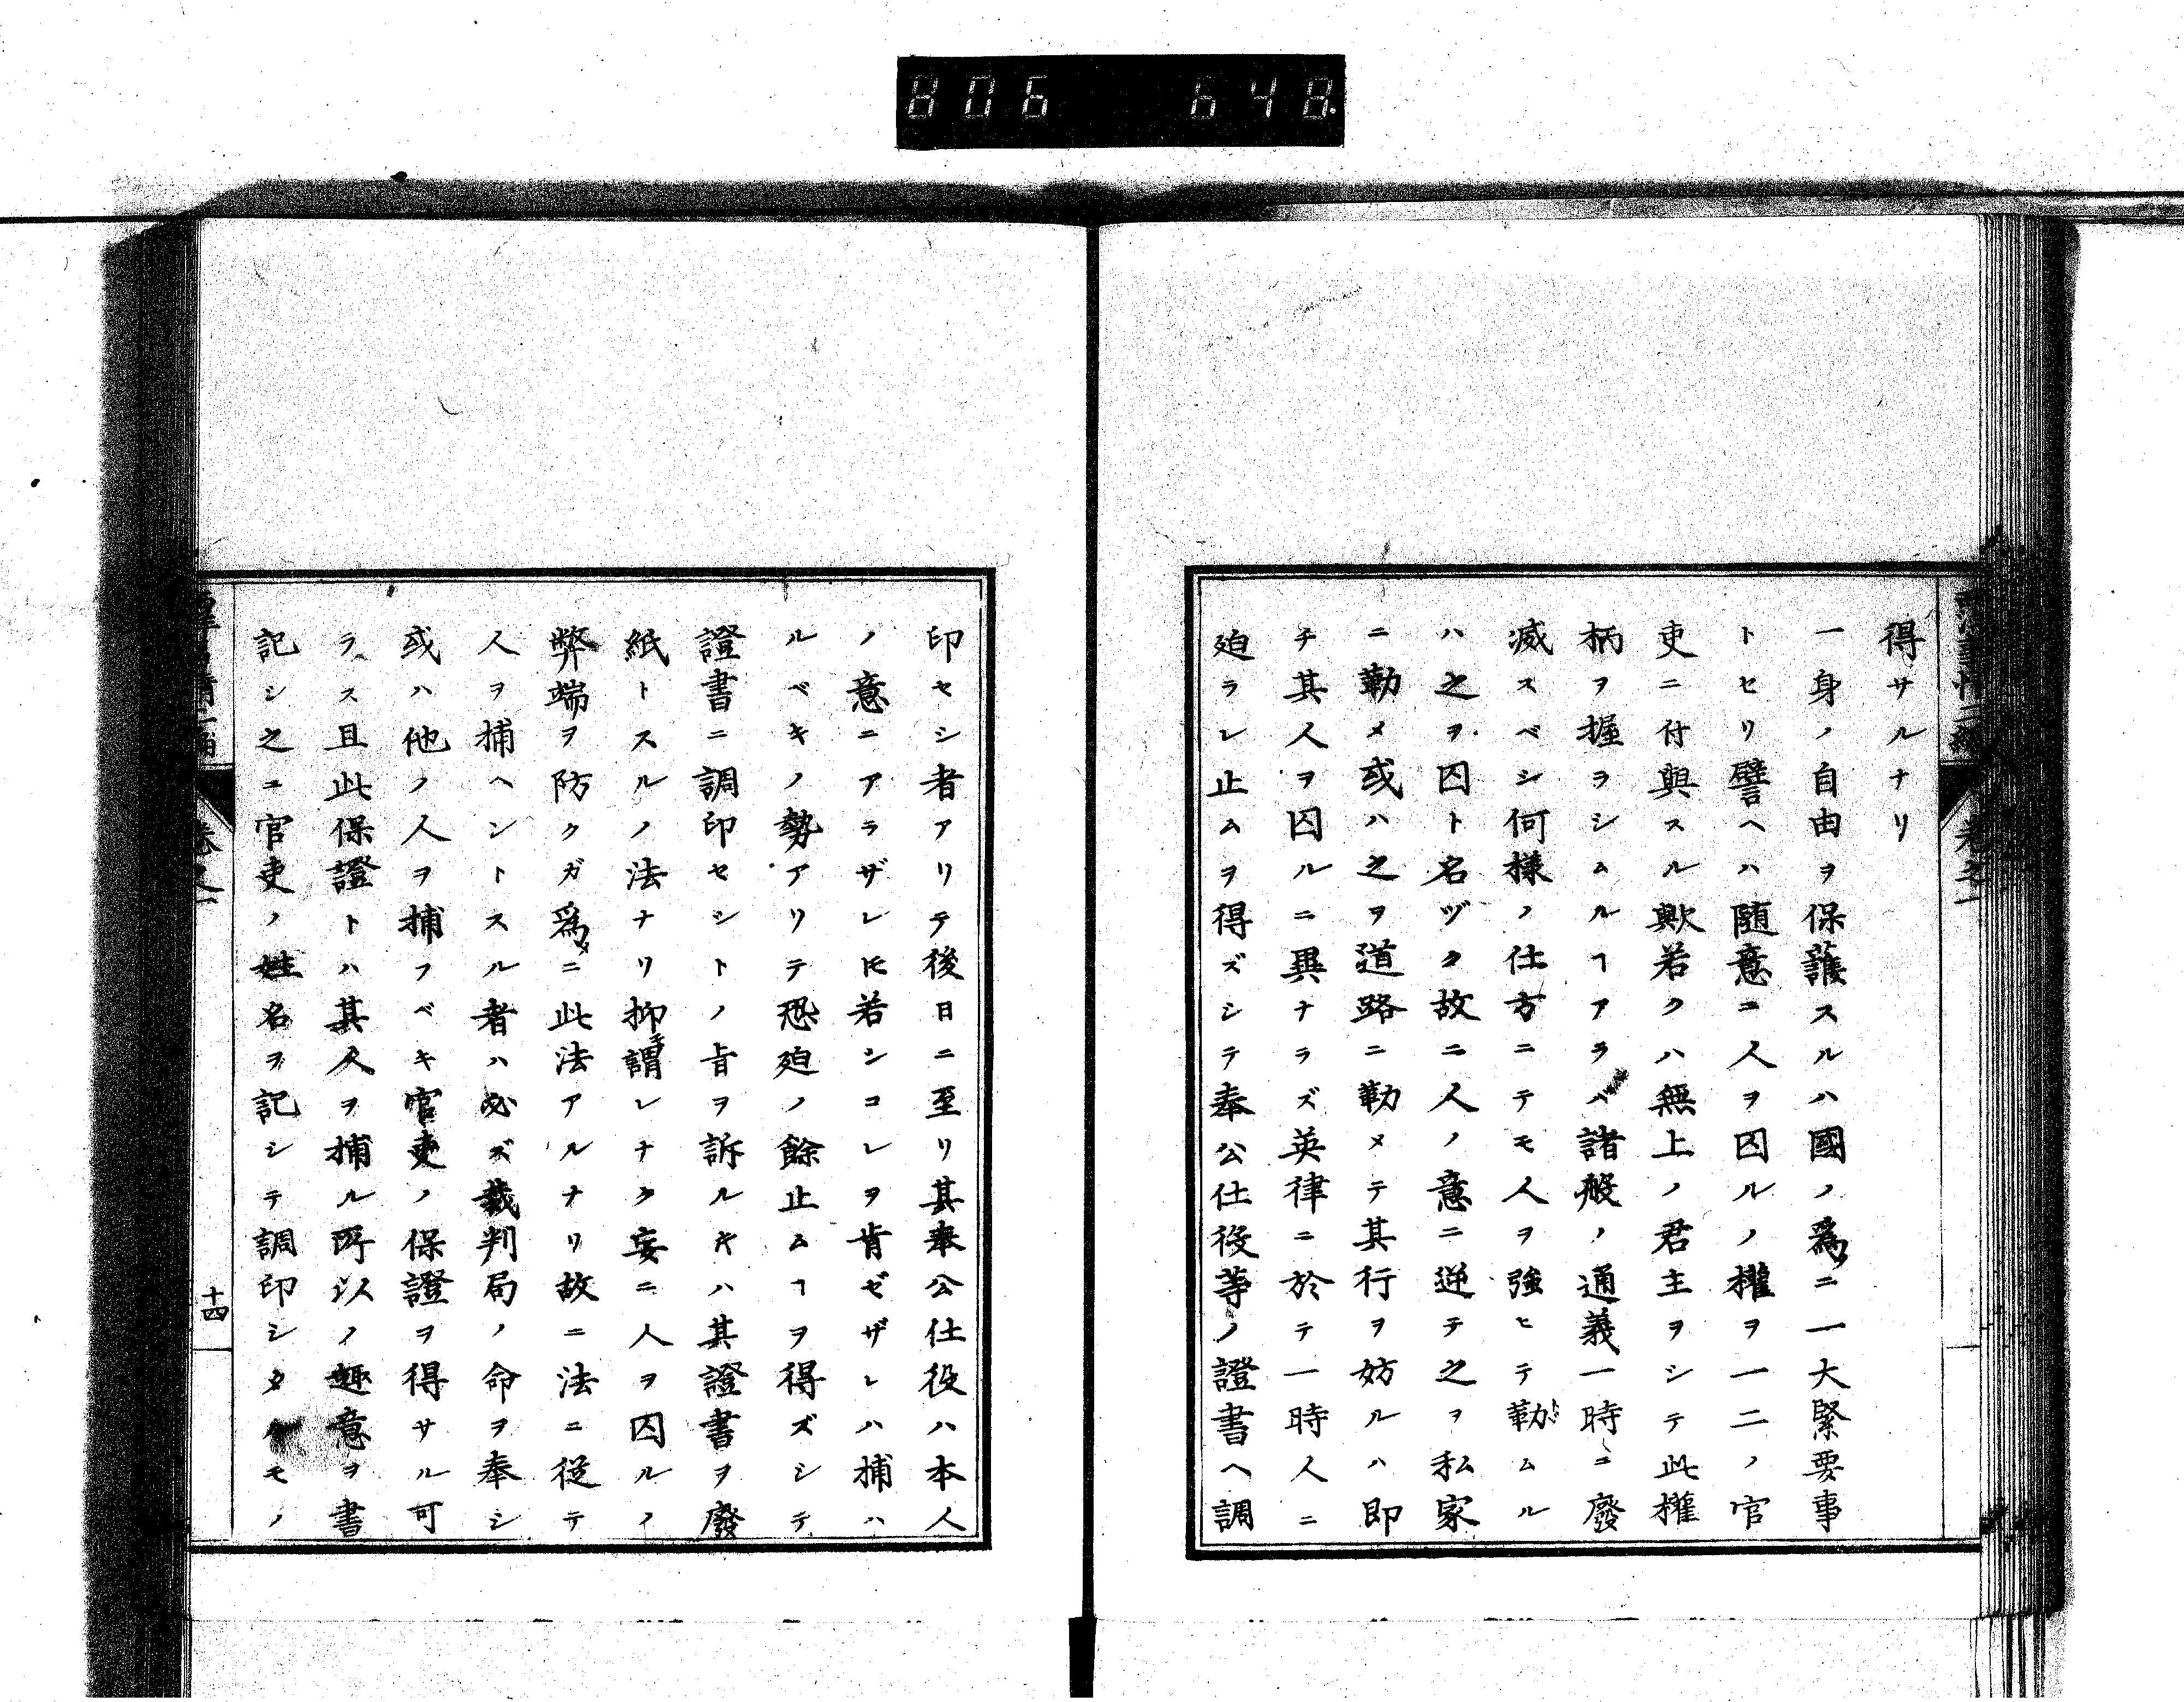 806 648
得サルナリ
一身ノ自由ヲ保護スルハ國ノ爲ニ一大緊要事
トセリ譬ヘハ隨意ニ人ヲ囚ルノ權ヲ一二ノ官
吏ニ付與スル歟若クハ無上ノ君主ヲシテ此權
柄ヲ握ラシムルヿアラバ諸般ノ通義一時ニ廢
滅スベシ何樣ノ仕方ニテモ人ヲ強ヒテ勒ムル
ハ之ヲ囚ト名ヅク故ニ人ノ意ニ逆テ之ヲ私家
ニ勒メ或ハ之ヲ道路ニ勒メテ其行ヲ妨ルハ即
チ其人ヲ囚ルニ異ナラズ英律ニ於テ一時人ニ
廹ラレ止ムヲ得ズシテ奉公仕役等ノ證書ヘ調
印セシ者アリテ後日ニ至リ其奉公仕役ハ本人
ノ意ニアラザレ𪜈若シコレヲ肯ゼザレハ捕ハ
ルベキノ勢アリテ恐廹ノ餘止ムヿヲ得ズシテ
證書ニ調印セシトノ旨ヲ訴ルキハ其證書ヲ廢
紙トスルノ法ナリ抑謂レナク妄ニ人ヲ囚ルノ
弊端ヲ防クガ爲メニ此法アルナリ故ニ法ニ從テ
人ヲ捕ヘントスル者ハ必ズ裁判局ノ命ヲ奉シ
或ハ他ノ人ヲ捕フベキ官吏ノ保證ヲ得サル可
ラス且此保證トハ其人ヲ捕ル所以ノ趣意ヲ書
記シ之ニ官吏ノ姓名ヲ記シテ調印シタルモノ
卷之一
十四